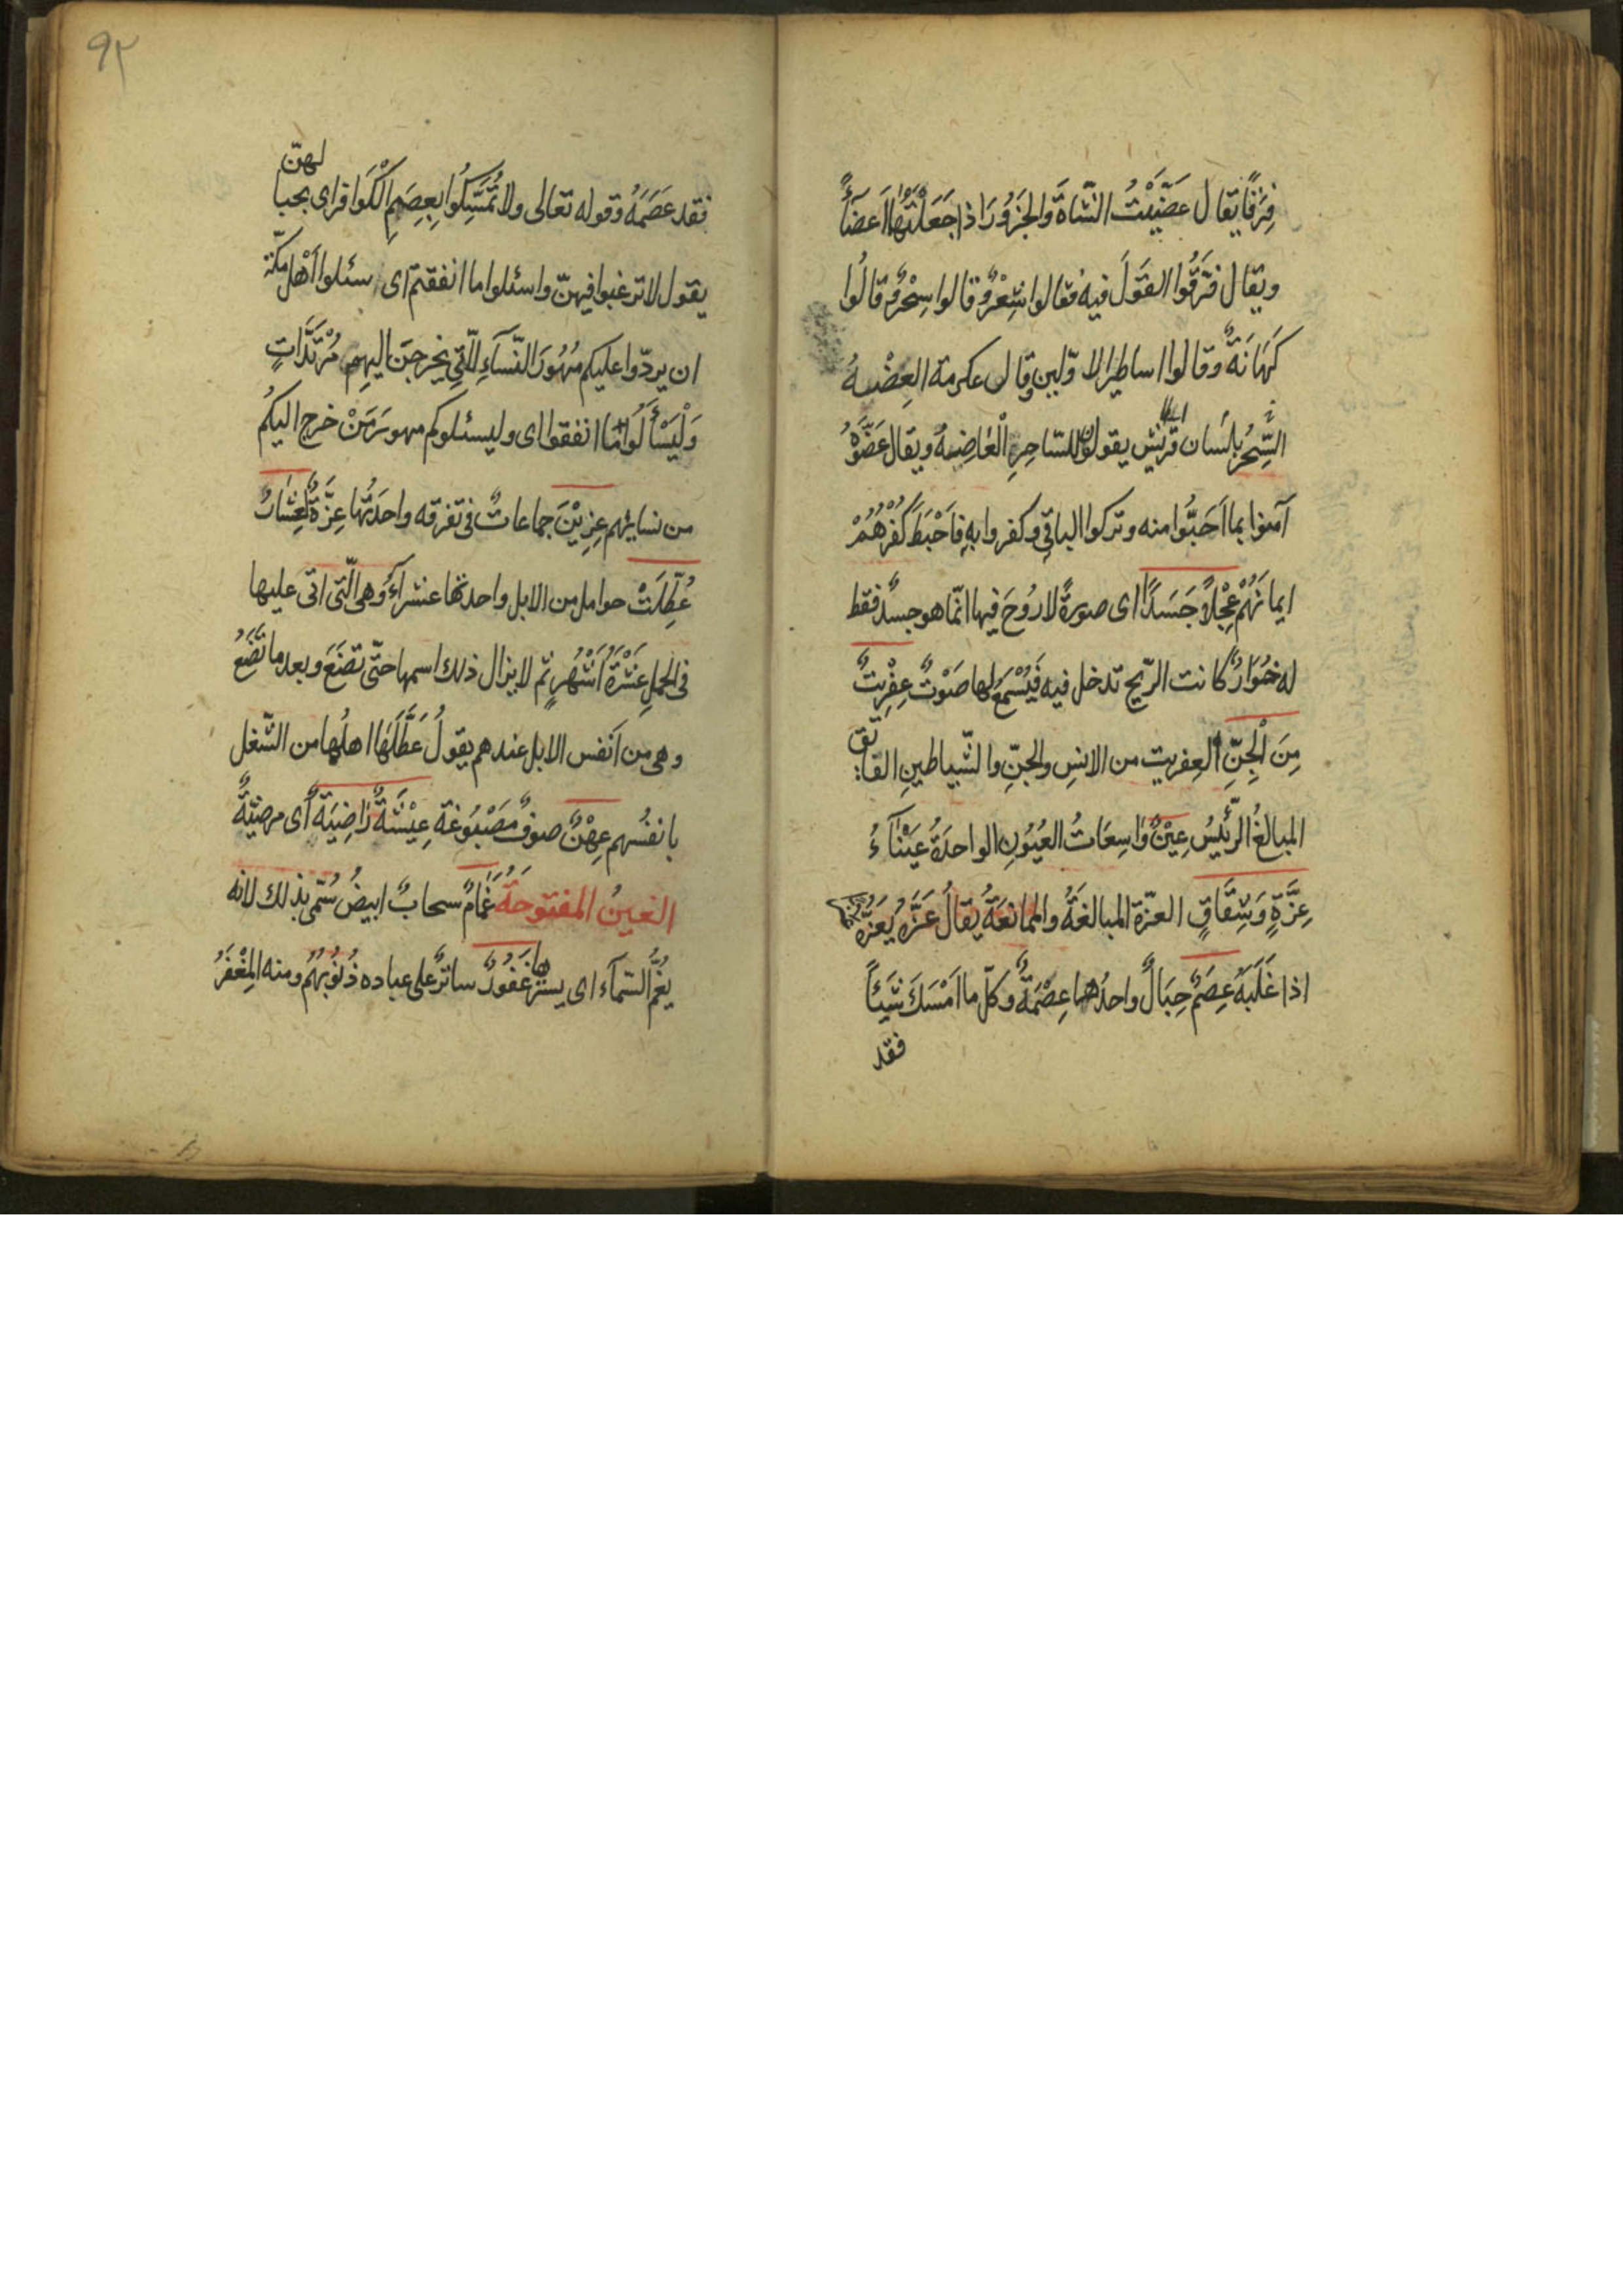 فِرَقًا يقال عَضَّيْتُ الشّاةَ وَالجَزُورَ اذا جَعَلْتَهَا اَعضَآءً
ويقال فَرَّقُوا القَولَ فيه فقالوا شِعْرٌ وقالوا سِحْرٌ وقالُوا
كَهَانَةٌ وقالوا اساطير الاوّلين وقال عكرمة العِضْهُ
السِّحْرُ بلسان قريش يقولون للسّاحِرِ الْعَاضِهةُ ويقال عَضَّوْهُ
آمنوا بما اَحَبُّوا منه وتركوا الباقِي وكفروا بهِ فاَحْبَطَ كُفْرُهُمْ
ايمانَهُمْ عِجْلاً جَسَدًا اى صورةً لا رُوحَ فيها انّما هو جسدٌ فقط
له خُوَارٌ كانت الرّيح تدخل فيه فَيُسْمَعُ لها صَوْتٌ عِفْرِيتٌ
مِنَ الْجِنِّ العِفريت من الانسِ والجنِّ والشّياطينِ الفائق
المبالغُ الرّئيسُ عِيْنٌ وَاسِعَاتُ العُيُونِ الواحدَةُ عَيْنَآءُ
عِزَّةٍ وَشِقَاقٍ العزّة المبالغَةُ والممانعَةُ يُقالُ عَزَّهُ يَعُزُّهُ
اذا غَلَبَهُ عِصَمٌ حِبَالٌ واحدُها عِصْمَةٌ وكلّ ما اَمْسَكَ شَيْئاً
فقد
فقد عَصَمَهُ وقوله تعالى ولا تُمَسِّكُوا بِعِصَمِ الْكَوَافر اى بحبالهنّ
يقول لا ترغبوا فيهنّ واسئلوا ما انفقتم اى سئلوا اَهْل مكّة
ان يردّوا عليكم مُهُورَ النّسآءِ اللّاتِي يخرجنَ اليهم مُرْتَدَّاتٍ
وَلْيَسْأَلُوا مَا انفقوا اى وليسئلوكم مهور مَنْ خرج اليكُم
من نسايهم عِزِيْنَ جماعاتٌ فى تفرقه واحدَتُها عِزَةٌ عِشَارٌ
عُطِّلَتْ حوامل من الابل واحدتها عشرآءُ وهى الّتى اتى عليها
فى الحملِ عَشْرَةُ اَشْهُرٍ ثم لا يزال ذلك اسمها حتّى تضَعَ وبعد ما تَضَعُ
وهى من اَنفس الابل عندهم يقولُ عَطَّلَهَا اهلُها من الشّغل
بانفُسِهم عِهْنٌ صوفٌ مَصْبُوغة عِيْشَةٌ رَاضِيَةٌ اى مرضيّةٌ
الغينُ المفتوحَةُ غَمَامٌ سحابٌ ابيضُ سُمّى بذلك لانه
يَغُمُّ السّمآء اى يسترها غَفُورٌ ساترٌ على عباده ذُنُوبَهُم ومنه المِغْفَرُ